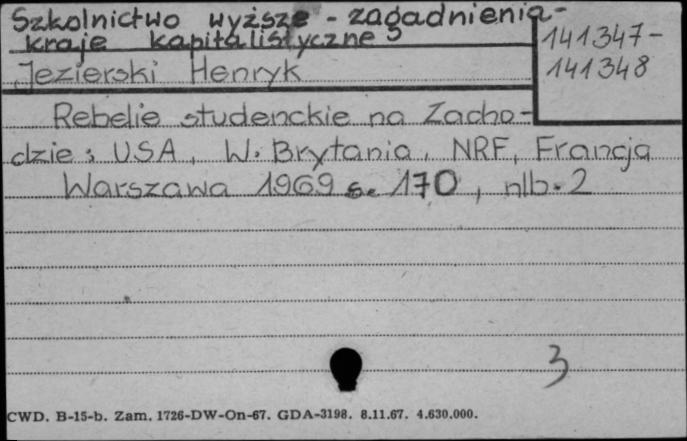 Szkolnictwo wyższe - zagadnienia-
kraje kapitalistyczne
141347-
141348
Jezierski Henryk
Rebelie studenckie na Zacho-
dzie: USA, W. Brytania, NRF, Francja
Warszawa 1969 s. 170, nlb. 2
3
CWD. B-15-b. Zam. 1726-DW-On-67. GDA-3198. 8.11.67. 4.630.000.